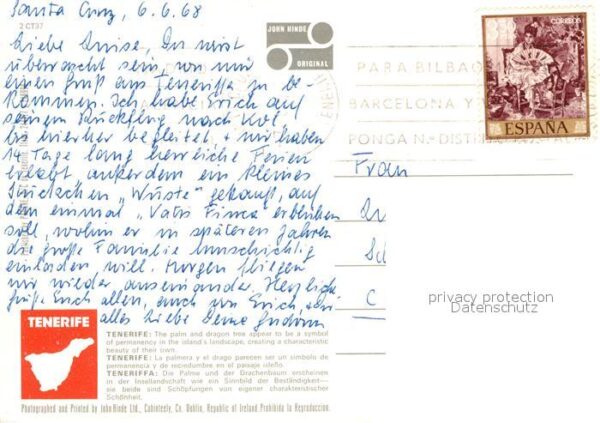 Santa Cruz, 6.6.68
2 CT37
Liebe Luise, Du wirst
überrascht sein von mir
einen Gruß aus Teneriffa zu be-
kommen. Ich habe Erich auf
seinem Rückflug nach
bis hierher begleitet + wir haben
14 Tage lang herrliche Ferien
erlebt außerdem ein kleines
Stückchen „Wüste" gekauft, auf
dem einmal „Vatis Finca" erblühen
soll, wohin er in späteren Jahren
die große Familie umschichtig
einladen will. Morgen fliegen
wir wieder auseinander. Herzliche
Grüße Euch allen, auch von Erich,
alles Liebe Deine
JOHN HINDE
ORIGINAL
PARA BILBAO
BARCELONA Y
PONGA N.º DISTRITO POSTAL
CORREOS
ESPAÑA
Frau
privacy protection
Datenschutz
TENERIFE
TENERIFE: The palm and dragon tree appear to be a symbol
of permanency in the island's landscape, creating a characteristic
beauty of their own.
TENERIFE: La palmera y el drago parecen ser un simbolo de
permanencia y de reciedumbre en el paisaje isleño.
TENERIFFA: Die Palme und der Drachenbaum erscheinen
in der Insellandschaft wie ein Sinnbild der Beständigkeit—
sie beide sind Schöpfungen von eigener charakteristischer
Schönheit.
Photographed and Printed by John Hinde Ltd., Cabinteely, Co. Dublin, Republic of Ireland. Prohibida la Reproduccion.